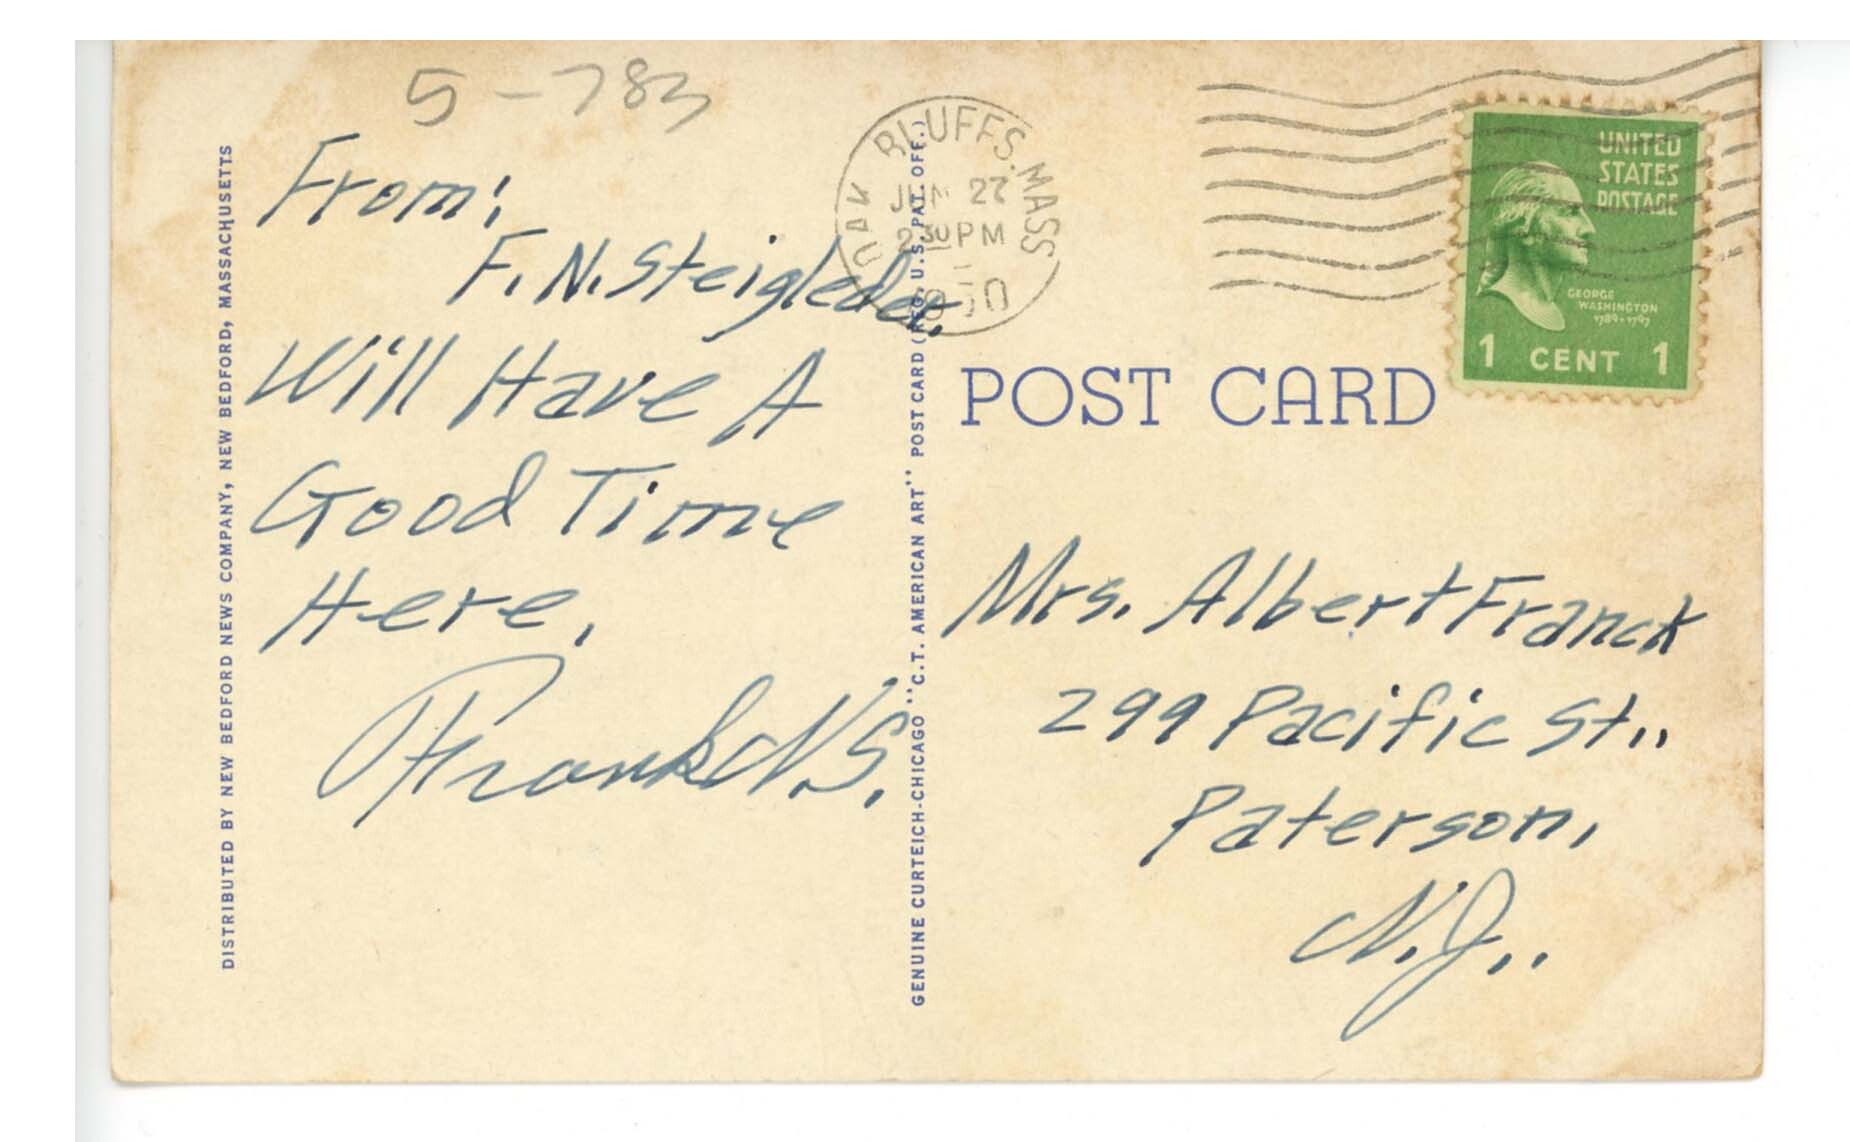 5-783
From:
F. N. Steigleder.
Will Have A
Good Time
Here.
Frank N. S.
DISTRIBUTED BY NEW BEDFORD NEWS COMPANY, NEW BEDFORD, MASSACHUSETTS
GENUINE CURTEICH-CHICAGO "C.T. AMERICAN ART" POST CARD (REG. U.S. PAT. OFF.)
OAK BLUFFS. MASS
JUN 27
2 30 PM
1950
UNITED
STATES
POSTAGE
GEORGE
WASHINGTON
1789-1797
1 CENT 1
POST CARD
Mrs. Albert Franck
299 Pacific St..
Paterson,
N.J..